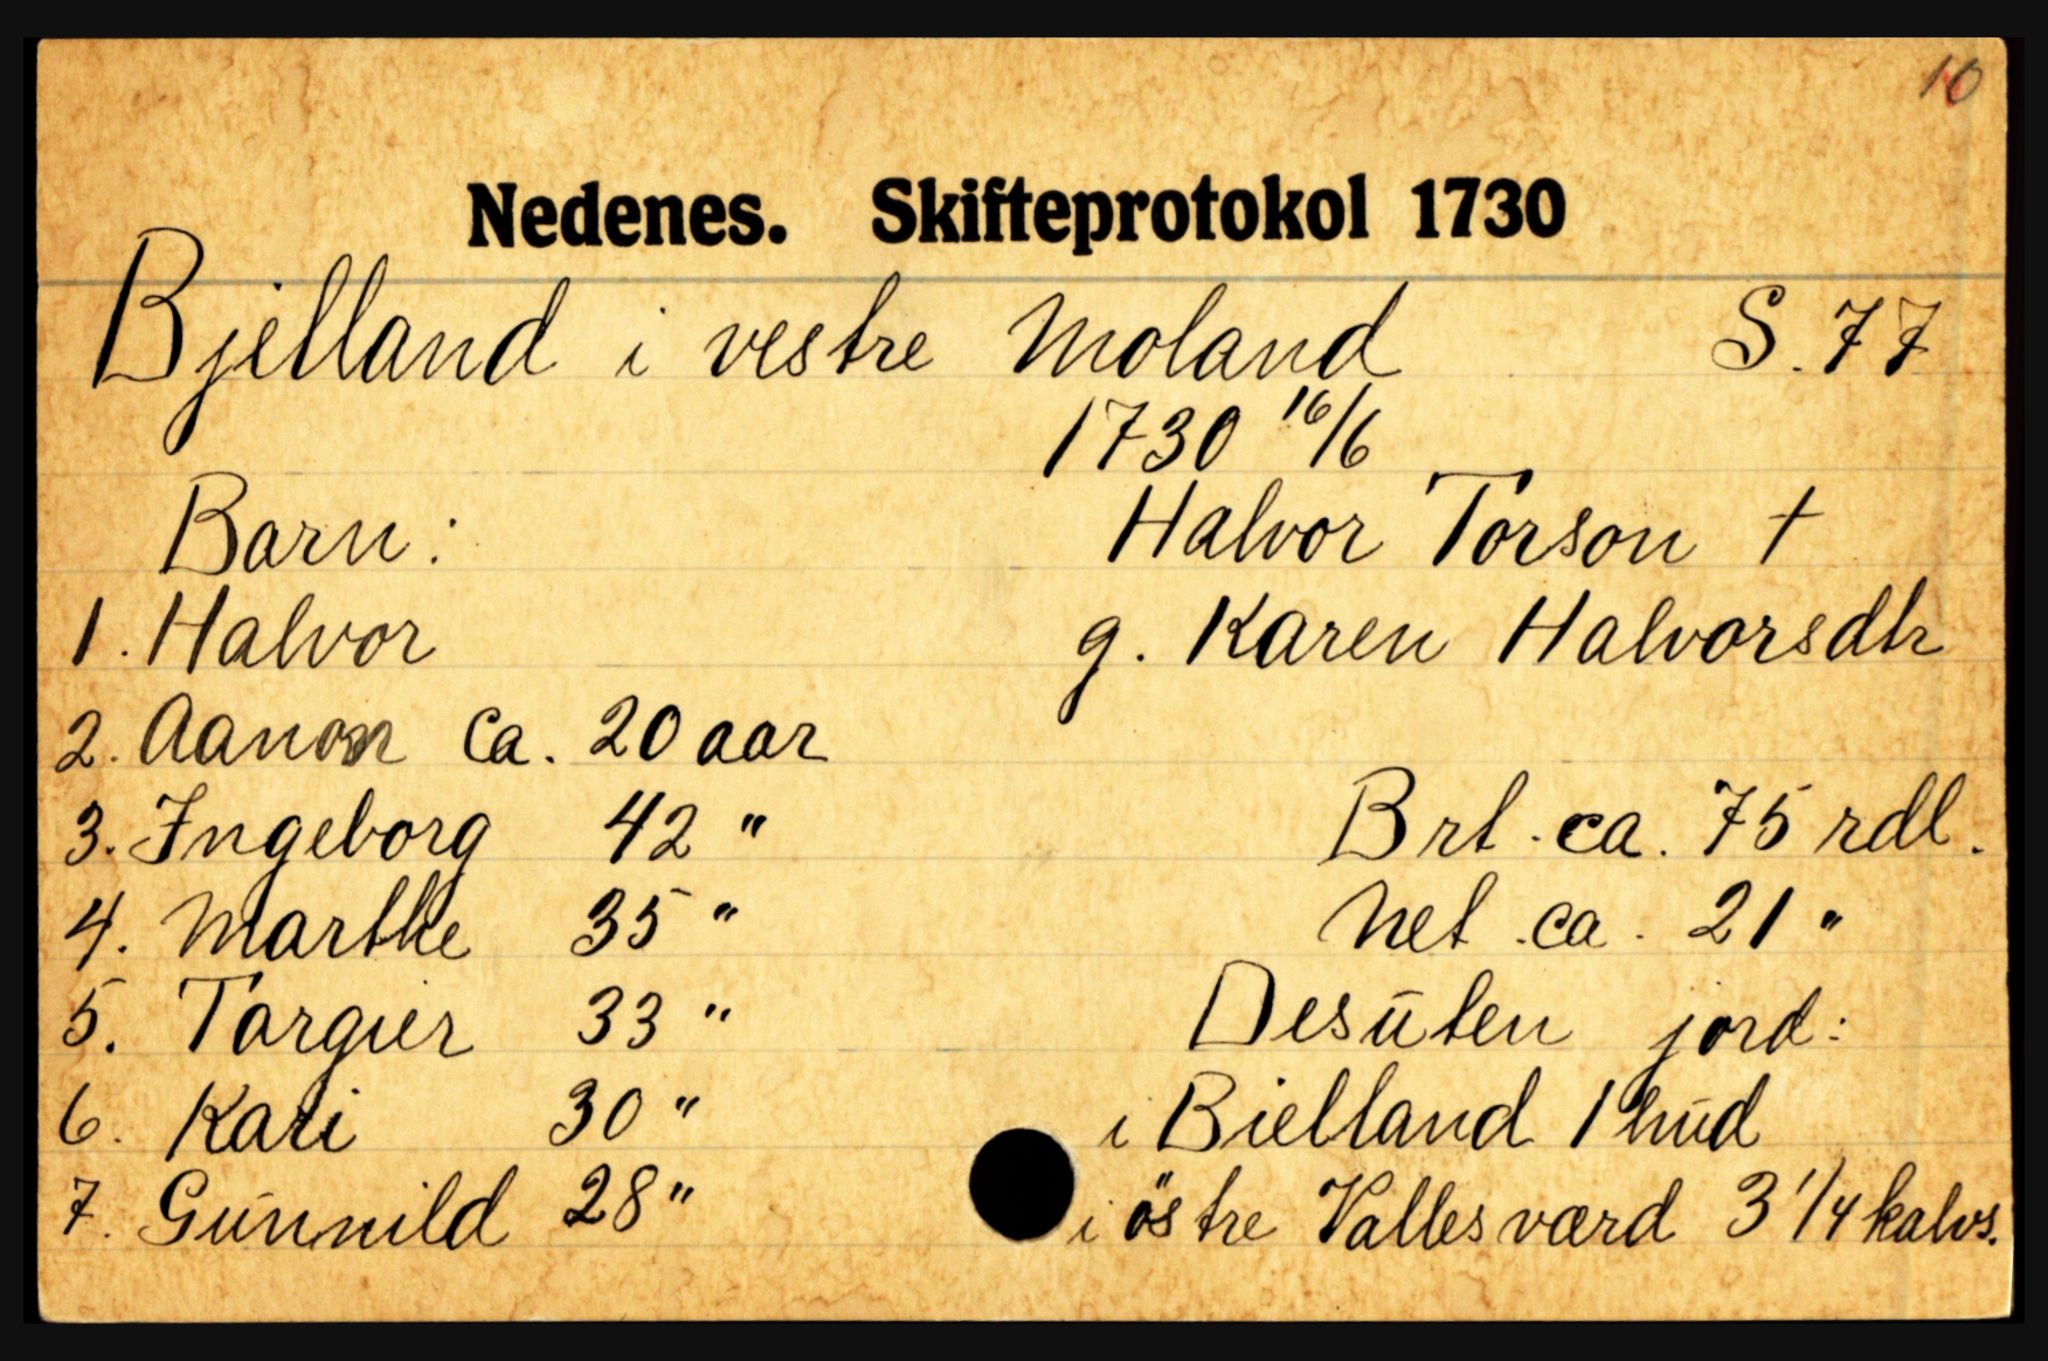 10
Nedenes. Skifteprotokol 1730
Bjelland i vestre Moland S. 77
1730 16/6
Barn: Halvor Torson †
1. Halvor g. Karen Halvorsdtr
2. Aanon ca. 20 aar
3. Ingeborg 42 " Brt. ca. 75 rdl.
4. Marthe 35 " Net. ca. 21 "
5. Torgier 33 " Desuten jord:
6. Kari 30 " i Bielland 1 hud
7. Gunnild 28 " i östre Vallesværd 3 1/4 kalvs.